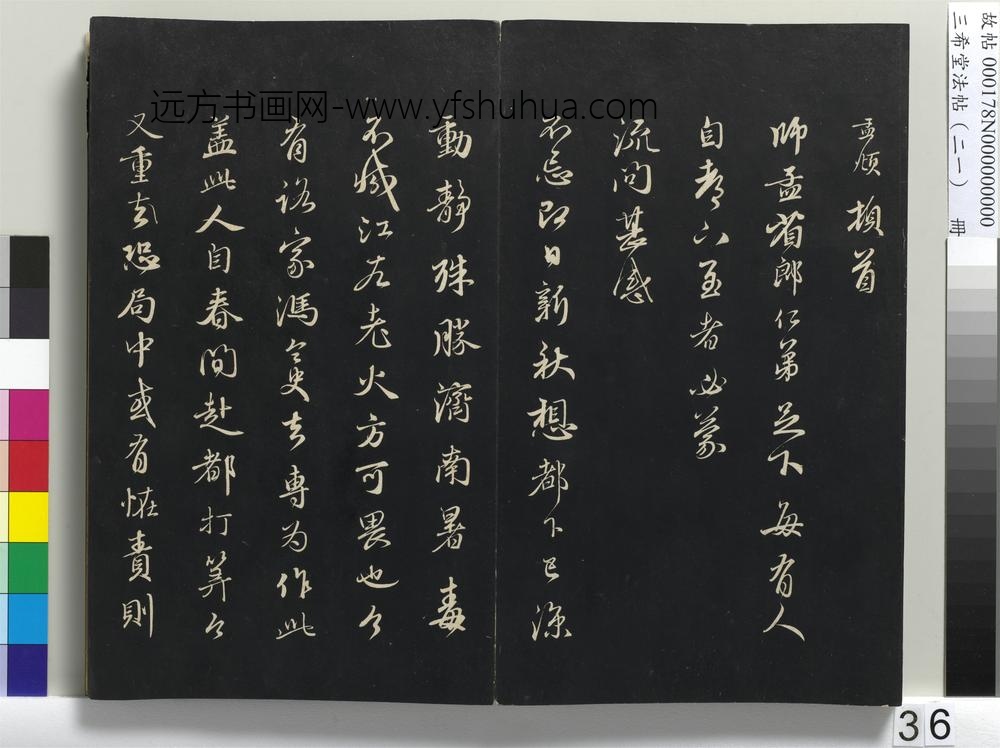 孟頫頓首
師孟省郎仁弟足下每有人
自都下至者必蒙
流問甚感
不忘即日新秋想都下已涼
動靜殊勝濟南暑毒
不減江左老火方可畏也今
有詻家馮令史去專為作此
盖此人自春間赴都打筭今
又重去恐局中或有恠責則
远方书画网-www.yfshuhua.com
故帖 000178N000000000
三希堂法帖（二一） 冊
36